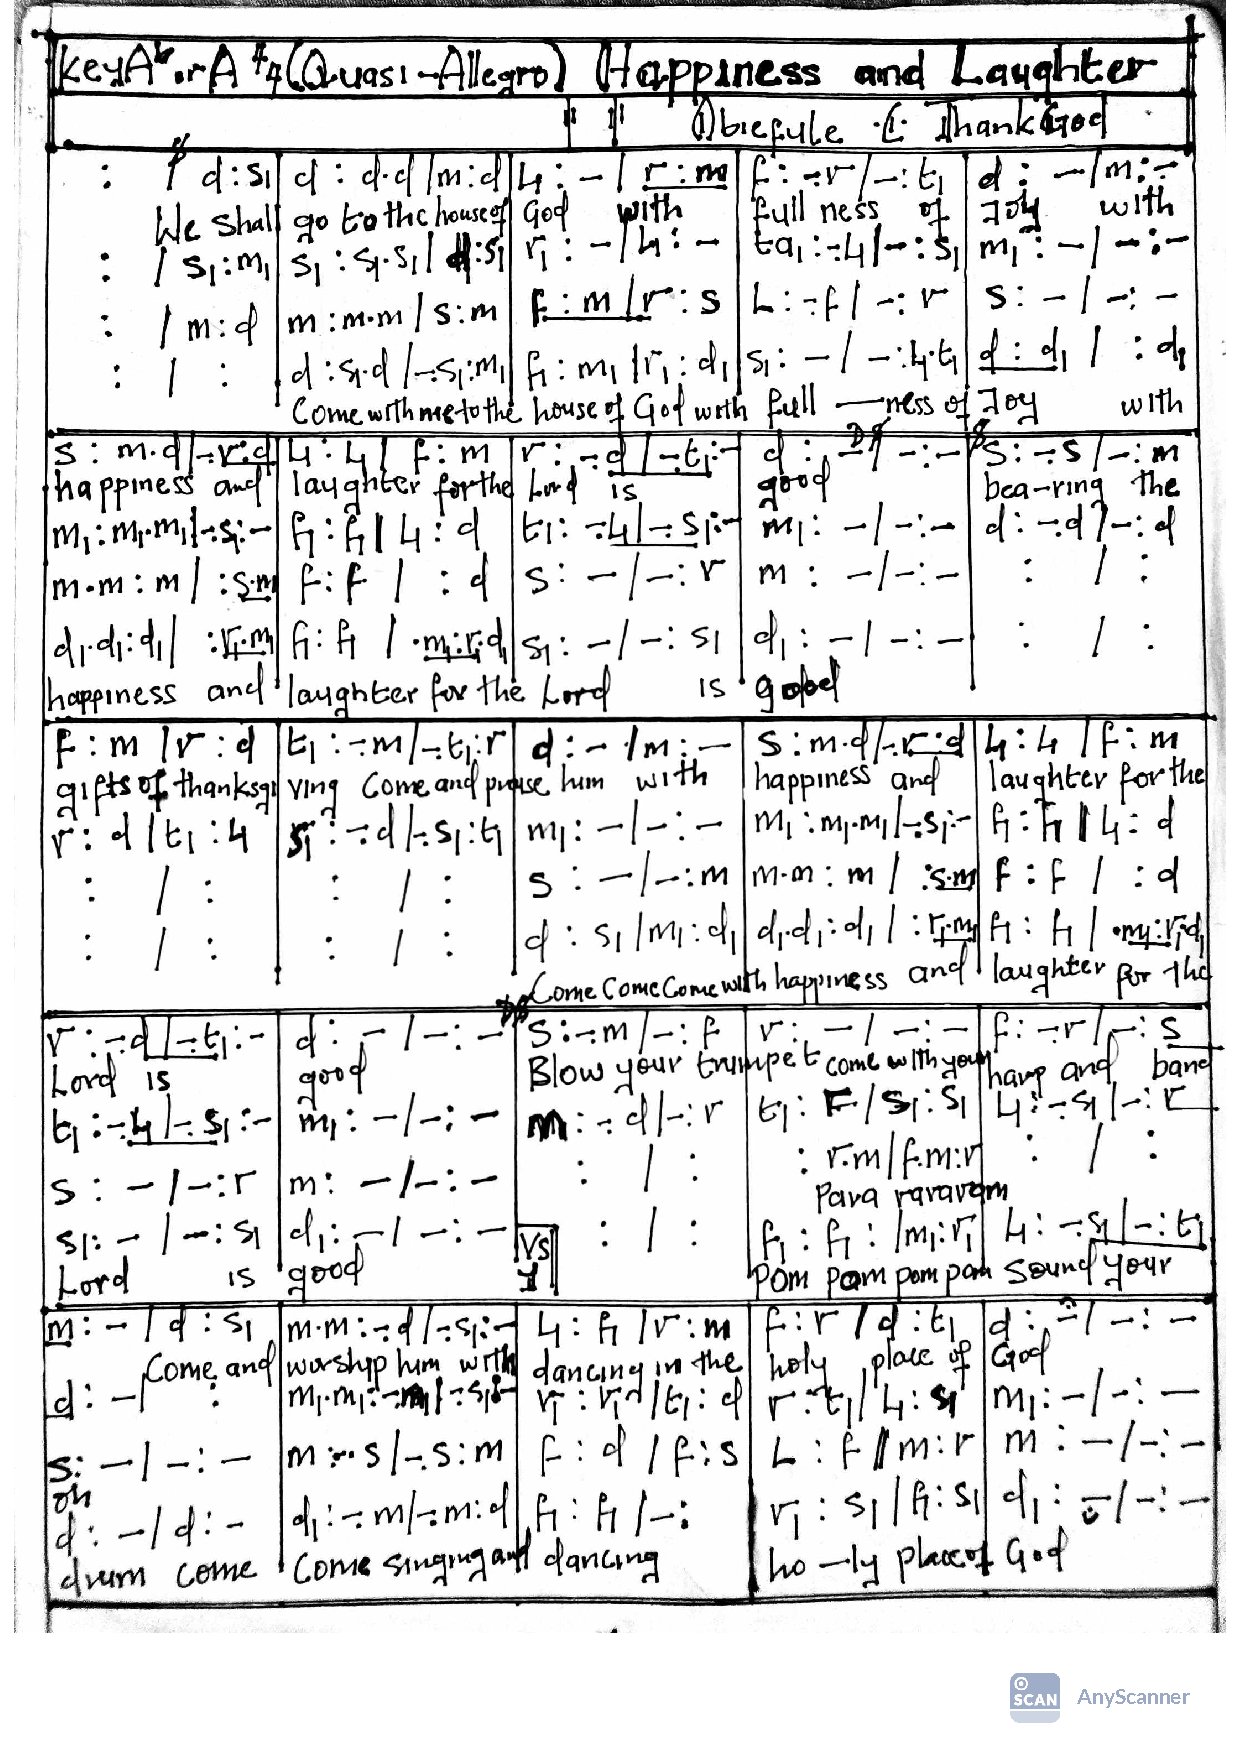 Key A♭ or A 4/4 (Quasi-Allegro) Happiness and Laughter
Obiefule .C. ThankGod
: / d : s₁ | d : d.d / m : d | l₁ : – / r : m | f : -.r / – : t₁ | d : – / m : –
We shall go to the house of God with full ness of Joy with
: / s₁ : m₁ | s₁ : s₁.s₁ / d : s₁ | r₁ : – / l₁ : – | ta₁ : -.l₁ / – : s₁ | m₁ : – / – : –
: / m : d | m : m.m / s : m | f : m / r : s | l : -.f / – : r | s : – / – : –
: / : | d : s₁.d / -.s₁ : m₁ | f₁ : m₁ / r₁ : d₁ | s₁ : – / – : l₁.t₁ | d : d₁ / : d₁
Come with me to the house of God with full — ness of Joy with
s : m.d / -.r : d | l₁ : l₁ / f : m | r : -.d / -.t₁ : – | d : – / – : – | s : -.s / – : m
happiness and laughter for the Lord is good bea-ring the
m₁ : m₁.m₁ / -.s₁ : – | f₁ : f₁ / l₁ : d | t₁ : -.l₁ / -.s₁ : – | m₁ : – / – : – | d : -.d / – : d
m.m : m / : s.m | f : f / : d | s : – / – : r | m : – / – : – | : / :
d₁.d₁ : d₁ / : r₁.m₁ | f₁ : f₁ / .m₁ : r₁.d₁ | s₁ : – / – : s₁ | d₁ : – / – : – | : / :
happiness and laughter for the Lord is good
f : m / r : d | t₁ : -.m / -.t₁ : r | d : – / m : – | s : m.d / -.r : d | l₁ : l₁ / f : m
gifts of thanksgi ving Come and praise him with happiness and laughter for the
r : d / t₁ : l₁ | s₁ : -.d / -.s₁ : t₁ | m₁ : – / – : – | m₁ : m₁.m₁ / -.s₁ : – | f₁ : f₁ / l₁ : d
: / : | : / : | s : – / – : m | m.m : m / : s.m | f : f / : d
: / : | : / : | d : s₁ / m₁ : d₁ | d₁.d₁ : d₁ / : r₁.m₁ | f₁ : f₁ / .m₁ : r₁.d₁
Come Come Come with happiness and laughter for the
r : -.d / -.t₁ : – | d : – / – : – | s : -.m / – : f | r : – / – : – | f : -.r / – : s
Lord is good Blow your trumpet come with your harp and band
t₁ : -.l₁ / -.s₁ : – | m₁ : – / – : – | m : -.d / – : r | t₁ : F / s₁ : s₁ | l₁ : -.s₁ / – : r
s : – / – : r | m : – / – : – | : / : | : r.m / f.m : r | : / :
Para raravam
s₁ : – / – : s₁ | d₁ : – / – : – | Vs 1 : / : | f₁ : f₁ : / m₁ : r₁ | l₁ : -.s₁ / – : t₁
Lord is good Pom pam pom pam sound your
m : – / d : s₁ | m.m : -.d / -.s₁ : – | l₁ : f₁ / r : m | f : r / d : t₁ | d : – / – : –
Come and worship him with dancing in the holy place of God
d : – / : | m₁.m₁ : -.m₁ / -.s₁ : – | r₁ : r₁ / t₁ : d | r : t₁ / l₁ : s₁ | m₁ : – / – : –
s : – / – : – | m : -.s / -.s : m | f : d / f : s | l : f / m : r | m : – / – : –
oh
d : – / d : – | d₁ : -.m / -.m : d | f₁ : f₁ / – : | r₁ : s₁ / f₁ : s₁ | d₁ : – / – : –
drum come Come singing and dancing ho – ly place of God
SCAN AnyScanner